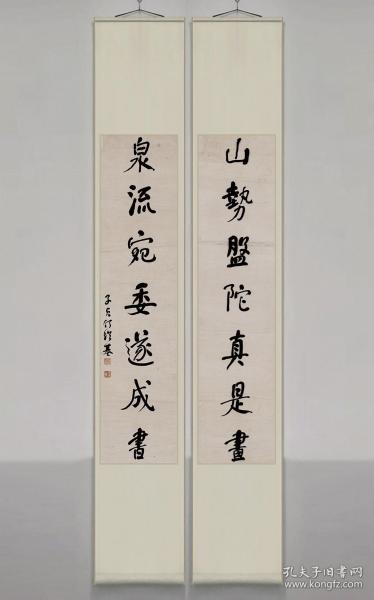 山勢盤陀真是畫
泉流宛委遂成書
子貞何紹基
孔夫子旧书网
www.kongfz.com